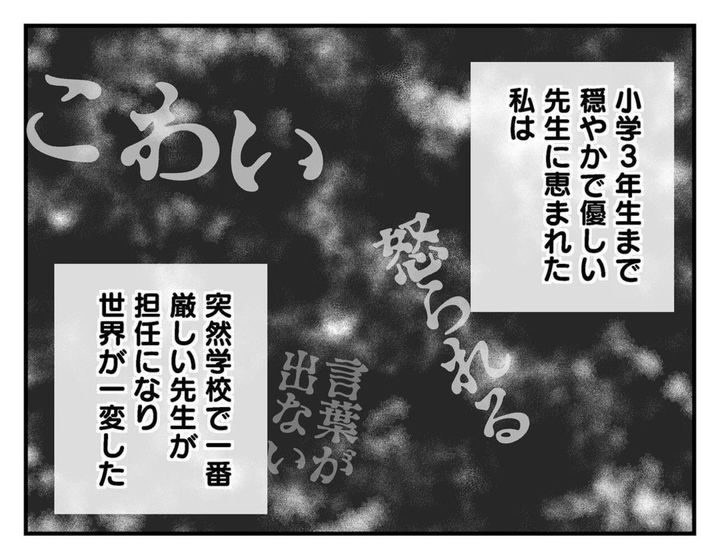 小学3年生まで
穏やかで優しい
先生に恵まれた
私は
こわい
怒られる
言葉が
出ない
突然学校で一番
厳しい先生が
担任になり
世界が一変した